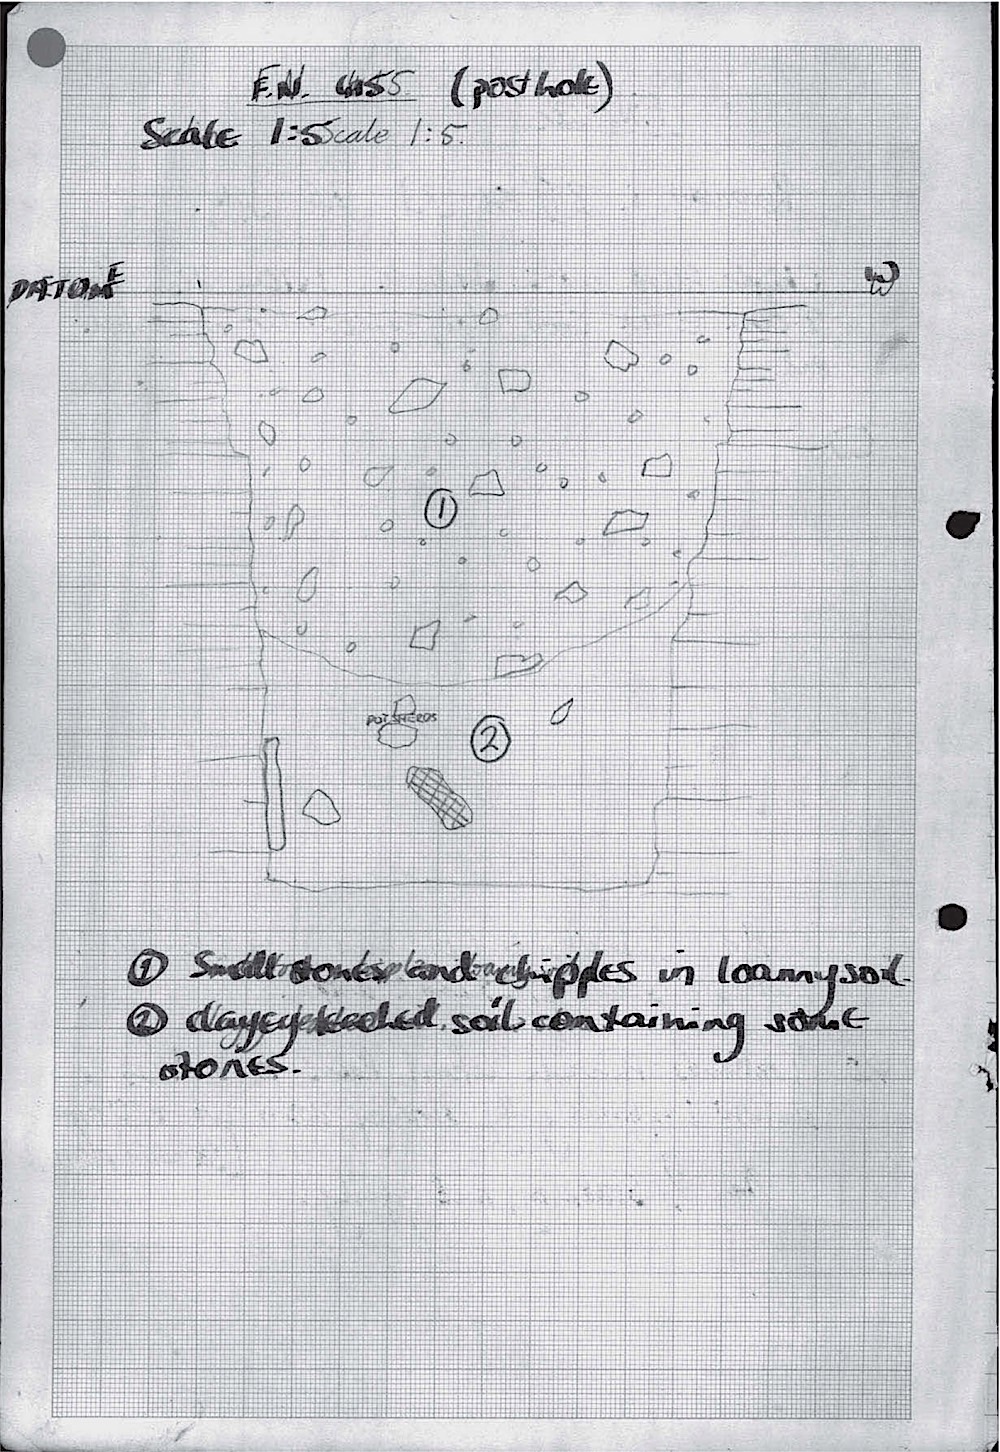 F.N. 455 (posthole)
Scale 1:5 Scale 1:5.
DATUM E W
①
POTSHERDS
②
① Small stones and chipples in loamy soil
② clayey leached soil containing some
stones.